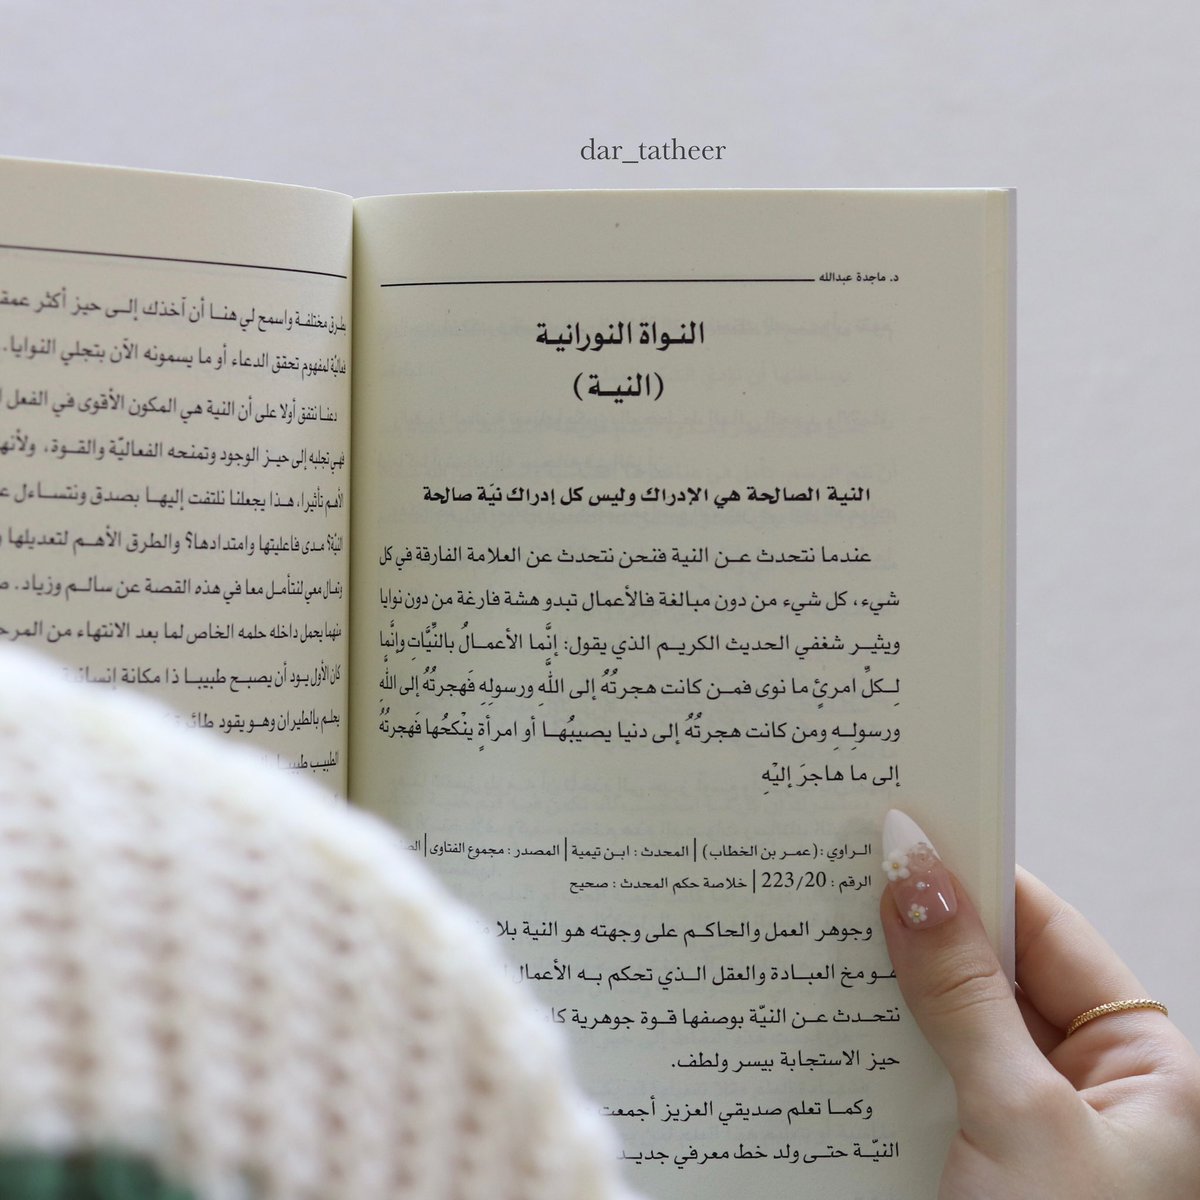 dar_tatheer
د. ماجدة عبدالله
النواة النورانية
(النية)
النية الصالحة هي الإدراك وليس كل إدراك نيّة صالحة
عندما نتحدث عن النية فنحن نتحدث عن العلامة الفارقة في كل
شيء، كل شيء من دون مبالغة فالأعمال تبدو هشة فارغة من دون نوايا
ويثير شغفي الحديث الكريم الذي يقول: إنَّما الأعمالُ بالنِّيَّاتِ وإنَّما
لِكلِّ امرئٍ ما نوى فمن كانت هجرتُهُ إلى اللَّهِ ورسولِهِ فَهجرتُهُ إلى اللَّهِ
ورسولِهِ ومن كانت هجرتُهُ إلى دنيا يصيبُها أو امرأةٍ ينْكحُها فَهجرتُهُ
إلى ما هاجرَ إليْهِ
الراوي : (عمر بن الخطاب) | المحدث : ابن تيمية | المصدر : مجموع الفتاوى |
الرقم : 223/20 | خلاصة حكم المحدث : صحيح
وجوهر العمل والحاكم على وجهته هو النية بلا
هو مخ العبادة والعقل الذي تحكم به الأعمال
نتحدث عن النيّة بوصفها قوة جوهرية
حيز الاستجابة بيسر ولطف.
وكما تعلم صديقي العزيز أجمعت
النيّة حتى ولد خط معرفي جديد
بطرق مختلفة واسمح لي هنا أن آخذك إلى حيز أكثر
فعاليّة لمفهوم تحقق الدعاء أو ما يسمونه الآن بتجلي النوايا.
دعنا نتفق أولا على أن النية هي المكون الأقوى في الفعل
فهي تجلبه إلى حيز الوجود وتمنحه الفعاليّة والقوة، ولأنها
الأهم تأثيرا، هذا يجعلنا نلتفت إليها بصدق ونتساءل
النيّة؟ مدى فاعليتها وامتدادها؟ والطرق الأهم لتعديلها
وتعال معي لنتأمل معا في هذه القصة عن سالم وزياد.
منهما يحمل داخله حلمه الخاص لما بعد الانتهاء من
كان الأول يود أن يصبح طبيبا ذا مكانة إنسانية
يحلم بالطيران وهو يقود طائرة
الطبيب طبيبا